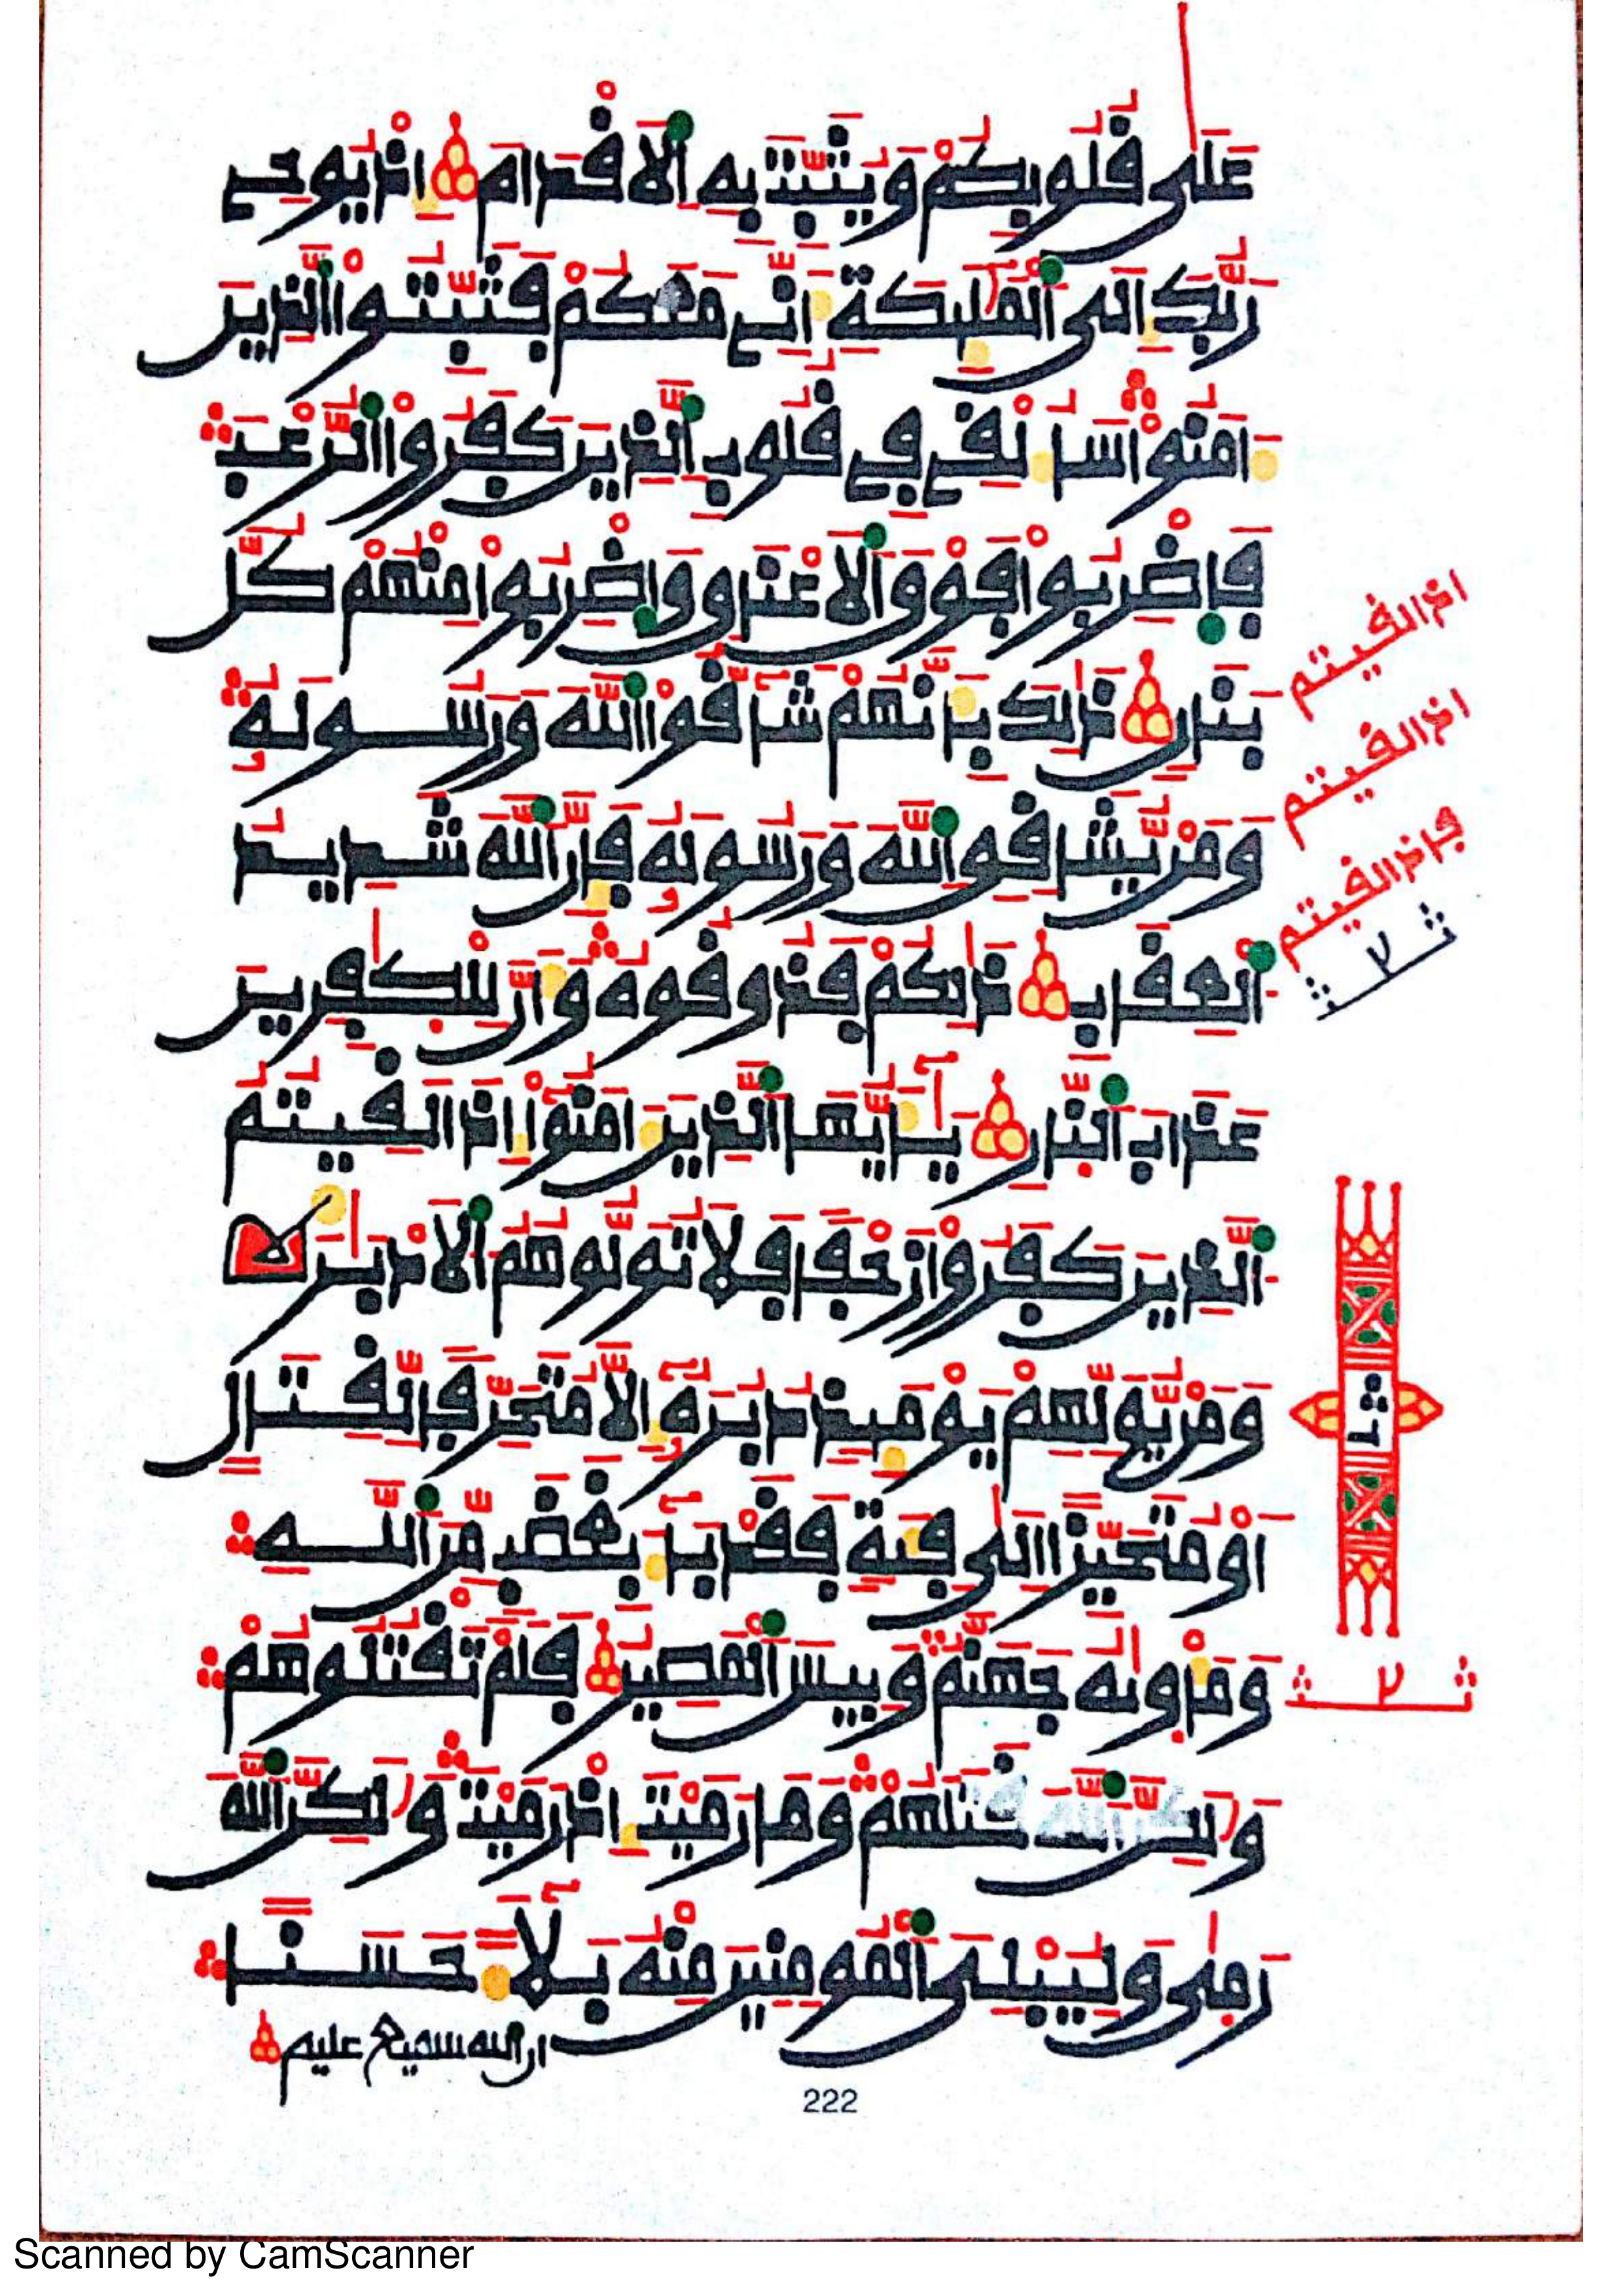 عَلَىٰ قُلُوبِكُمْ وَيُثَبِّتَ بِهِ اِ۬لَاقْدَامَ إِذْ يُوحِے
رَبُّكَ إِلَى اَ۬لْمَلَٰٓئِكَةِ أَنِّے مَعَكُمْ فَثَبِّتُواْ اُ۬لذِينَ
ءَامَنُواْ سَأُلْقِے فِے قُلُوبِ اِ۬لذِينَ كَفَرُواْ اُ۬لرُّعْبَ
فَاضْرِبُواْ فَوْقَ اَ۬لَاعْنَاقِ وَاضْرِبُواْ مِنْهُمْ كُلَّ
بَنَانٖ ذَٰلِكَ بِأَنَّهُمْ شَآقُّواْ اُ۬للَّهَ وَرَسُولَهُۥ
وَمَنْ يُّشَاقِقِ اِ۬للَّهَ وَرَسُولَهُۥ فَإِنَّ اَ۬للَّهَ شَدِيدُ
اُ۬لْعِقَابِ ذَٰلِكُمْ فَذُوقُوهُ وَأَنَّ لِلْكٰ۪فِرِينَ
عَذَابَ اَ۬لنّ۪ارِ يَٰٓأَيُّهَا اَ۬لذِينَ ءَامَنُوٓاْ إِذَا لَقِيتُمُ
اُ۬لذِينَ كَفَرُواْ زَحْفاٗ فَلَا تُوَلُّوهُمُ اُ۬لَادْبَٰرَ
وَمَنْ يُّوَلِّهِمْ يَوْمَئِذٖ دُبُرَهُۥٓ إِلَّا مُتَحَرِّفاٗ لِّقِتَالٍ
اَوْ مُتَحَيِّزاً اِلَىٰ فِئَةٖ فَقَدْ بَآءَ بِغَضَبٖ مِّنَ اَ۬للَّهِ
وَمَأْو۪ىٰهُ جَهَنَّمُ وَبِيسَ اَ۬لْمَصِيرُ فَلَمْ تَقْتُلُوهُمْ
وَلَٰكِنَّ اَ۬للَّهَ قَتَلَهُمْ وَمَا رَمَيْتَ إِذْ رَمَيْتَ وَلَٰكِنَّ اَ۬للَّهَ
رَم۪ىٰ وَلِيُبْلِيَ اَ۬لْمُومِنِينَ مِنْهُ بَلَآءً حَسَناً
ان الله سميع عليم
222
اذا لقيتم
اذا لقيتم
فإذا لقيتم
Scanned by CamScanner